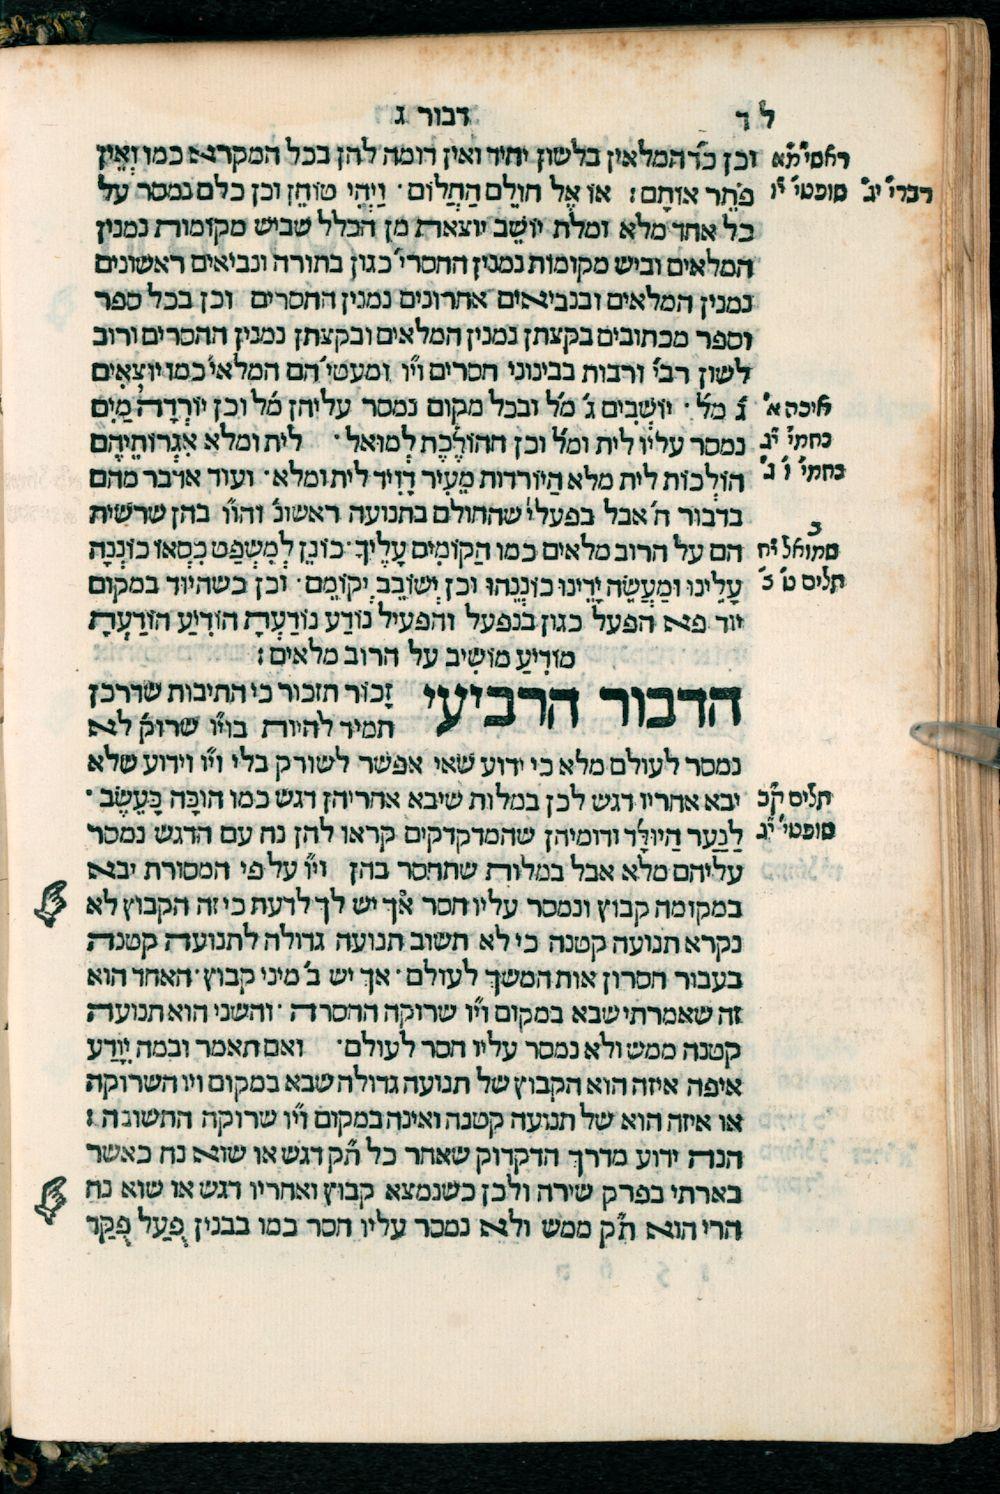 ל ד
דבור ג
וכן כ״ד המלאין בלשון יחיד ואין דומה להן בכל המקרא כמו וְאֵין
ראסי׳ מ״א
פֹתֵר אוֹתָם: או אֶל חוֹלֵם הַחֲלוֹם · וַיְהִי טוֹחֵן וכן כלם נמסר על
דברי׳ יג׳
סופטי׳ י״ו
כל אחד מלא ומלת יוֹשֵׁב יוצאת מן הכלל שביש מקומות נמנין
המלאים וביש מקומות נמנין החסרי׳ כגון בתורה ונביאים ראשונים
נמנין המלאים ובנביאים אחרונים נמנין החסרים וכן בכל ספר
וספר מכתובים בקצתן נמנין המלאים ובקצתן נמנין החסרים ורוב
לשון רבי׳ ורבות בבינוני חסרים וי״ו ומעטי׳ הם המלאי׳ כמו יוֹצְאִים
ג׳ מל׳ · יוֹשְׁבִים ג׳ מ״ל ובכל מקום נמסר עליהן מ״ל וכן יוֹרְדָה מַיִם
איכה א׳
נמסר עליו לית ומ״ל וכן הַהוֹלֶכֶת לְמוּאל · לית ומלא אִגְרוֹתֵיהֶם
נחמי׳ י״ג
הוֹלְכוֹת לית מלא הַיּוֹרְדוֹת מֵעִיר דָוִיד לית ומלא · ועוד אדבר מהם
נחמי׳ ו׳ ג׳
בדבור ה׳ אבל בפעלי׳ שהחולם בתנועה ראשונ׳ והוי״ו בהן שרשית
הם על הרוב מלאים כמו הַקּוֹמִים עָלֶיךָ · כּוֹנֵן לְמִשְׁפָט כִּסְאוֹ כּוֹנְנָה
2
סמואל י״ח
עָלֵינוּ וּמַעֲשֵׂה יָדֵינוּ כּוֹנְנֵהוּ וכן יְשׁוֹבֵב יְקוֹמֵם · וכן כשהיוד במקום
תליס ט׳ צ׳
יוד פא הפעל כגון בנפעל והפעיל נודַע נוֹדַעְתָּ הוֹדִיעַ הוֹדַעְתָּ
מוֹדִיעַ מוֹשִיב על הרוב מלאים:
הדבור הרביעי זָכוֹר תזכור כי התיבות שדרכן
תמיד להיות בוי״ו שרוק לא
נמסר לעולם מלא כי ידוע שאי אפשר לשורק בלי וי״ו וידוע שלא
יבא אחריו דגש לכן במלות שיבא אחריהן דגש כמו הוּכָּה כָּעֵשֶׂב ·
תליס ק״ב
לַנַּעַר הַיּוּלָּד ודומיהן שהמדקדקים קראו להן נח עם הדגש נמסר
סופטי׳ י״ג
עליהם מלא אבל במלות שתחסר בהן וי״ו על פי המסורת יבא
במקומה קבוץ ונמסר עליו חסר אך יש לך לדעת כי זה הקבוץ לא
נקרא תנועה קטנה כי לא תשוב תנועה גדולה לתנועה קטנה
בעבור חסרון אות המשך לעולם · אך יש ב׳ מיני קבוץ · האחד הוא
זה שאמרתי שבא במקום וי״ו שרוקה החסרה · והשני הוא תנועה
קטנה ממש ולא נמסר עליו חסר לעולם · ואם תאמר ובמה יִוָּדַע
איפה איזה הוא הקבוץ של תנועה גדולה שבא במקום ויו השרוקה
או איזה הוא של תנועה קטנה ואינה במקום וי״ו שרוקה התשובה:
הנה ידוע מדרך הדקדוק שאחר כל ת״ק דגש או שוא נח כאשר
בארתי בפרק שירה ולכן כשנמצא קבוץ ואחריו דגש או שוא נח
הרי הוא ת״ק ממש ולא נמסר עליו חסר כמו בבנין פֻעַל פֻּקַּד